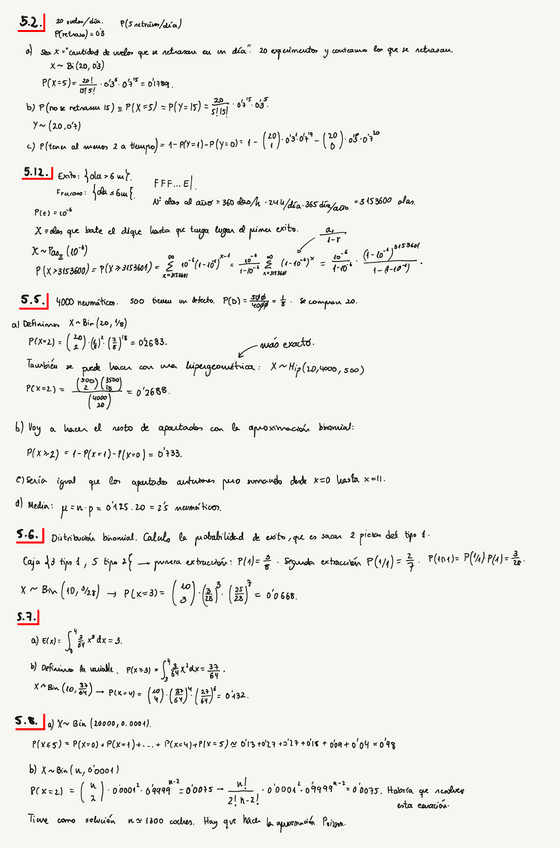 5.2. 20 vuelos/día. P(5 retrasos/día)
P(retraso)=0'3
a) Sea X="cantidad de vuelos que se retrasan en un día". 20 experimentos y contamos los que se retrasan.
X ~ Bi(20,0'3)
P(X=5)= 20!/(15!5!) · 0'3⁵ · 0'7¹⁵ = 0'1789.
b) P(no se retrasen 15) = P(X=5) = P(Y=15) = 20/(5!15!) · 0'7¹⁵ · 0'3⁵
Y ~ (20,0'7)
c) P(tener al menos 2 a tiempo) = 1-P(Y=1)-P(Y=0) = 1 - (20 1)·0'3¹·0'7¹⁹ - (20 0)·0'3⁰·0'7²⁰
5.12. Éxito: {ola > 6m}. FFF...E|.
Fracaso: {ola ≤ 6m}. Nº olas al año = 360 olas/h · 24 h/día · 365 día/año = 3153600 olas.
P(E) = 10⁻⁶
X = olas que bate el dique hasta que tenga lugar el primer éxito. a₁/(1-r)
P(X>3153600) = P(X≥3153601) = Σ 10⁻⁶(1-10⁻⁶)ˣ⁻¹ = 10⁻⁶/(1-10⁻⁶) Σ (1-10⁻⁶)ˣ = 10⁻⁶/(1-10⁻⁶) · (1-10⁻⁶)³¹⁵³⁶⁰¹/(1-(1-10⁻⁶)).
5.5. 4000 neumáticos. 500 tienen un defecto. P(D) = 500/4000 = 1/8. Se compran 20.
a) Definimos X ~ Bin(20, 1/8)
P(X=2) = (20 2)·(1/8)²·(7/8)¹⁸ = 0'2683. más exacto.
También se puede hacer con una hipergeométrica: X ~ Hip(20,4000,500)
P(X=2) = (500 2)(3500 18)/(4000 20) = 0'2688.
b) Voy a hacer el resto de apartados con la aproximación binomial:
P(X≥2) = 1-P(X=1)-P(X=0) = 0'733.
c) Sería igual que los apartados anteriores pero sumando desde x=0 hasta x=11.
d) Media: μ = n·p = 0'125·20 = 2'5 neumáticos.
5.6. Distribución binomial. Calculo la probabilidad de éxito, que es sacar 2 piezas del tipo 1.
Caja {3 tipo 1, 5 tipo 2} → primera extracción: P(1) = 3/8. Segunda extracción P(1/1) = 2/7. P(1∩1) = P(1/1)·P(1) = 3/28.
X ~ Bin(10, 3/28) → P(X=3) = (10 3)·(3/28)³·(25/28)⁷ = 0'0668.
5.7.
a) E(X) = ∫₀⁴ 3/64 x³ dx = 3.
b) Definimos la variable. P(X≥3) = ∫₃⁴ 3/64 x² dx = 37/64.
X ~ Bin(10, 37/64) → P(X=4) = (10 4)·(37/64)⁴·(27/64)⁶ = 0'132.
5.8. a) X ~ Bin(20000, 0.0001).
P(X≤5) = P(X=0)+P(X=1)+...+P(X=4)+P(X=5) ≈ 0'13+0'27+0'27+0'18+0'09+0'04 = 0'98
b) X ~ Bin(n, 0'0001)
P(X=2) = (n 2)·0'0001²·0'9999ⁿ⁻² = 0'0075 → n!/(2! n-2!) · 0'0001²·0'9999ⁿ⁻² = 0'0075. Habría que resolver
esta ecuación.
Tiene como solución n ≈ 1300 coches. Hay que hacer la aproximación Poisson.